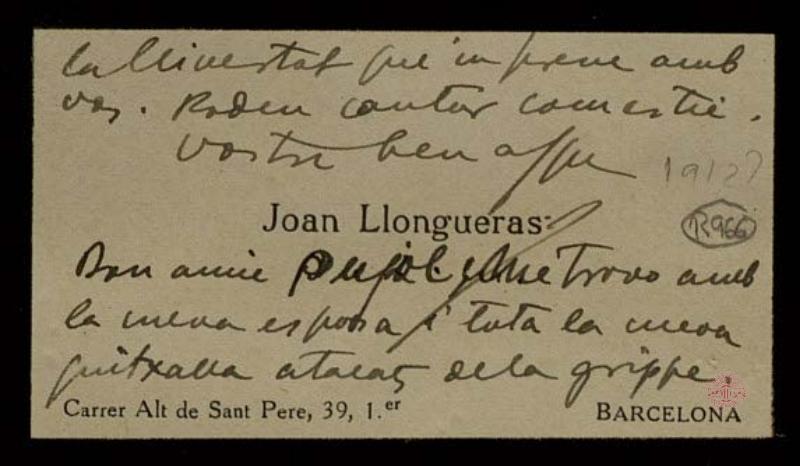 la llivertat que'm prenc amb
vos. Poden contar com estic.
Vostre ben affm
191??
Joan Llongueras
R966
Bon amic Pujol. Me trovo amb
la meva esposa i tota la meva
quitxalla atacats de la grippe
Carrer Alt de Sant Pere, 39, 1.er
BARCELONA